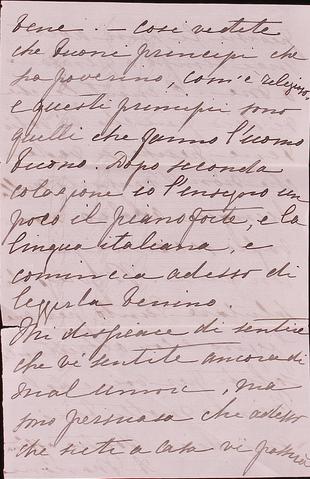 bene. – così vedete
che buoni principi che
ha poverino, com'è religioso,
e questi principi sono
quelli che fanno l'uomo
buono. Dopo seconda
colazione io l'insegno un
poco il pianoforte, e la
lingua italiana, e
comincia adesso di
leggerla benino.
Mi dispiace di sentire
che vi sentite ancora di
mal umore, ma
sono persuasa che adesso
che siete a casa vi passerà